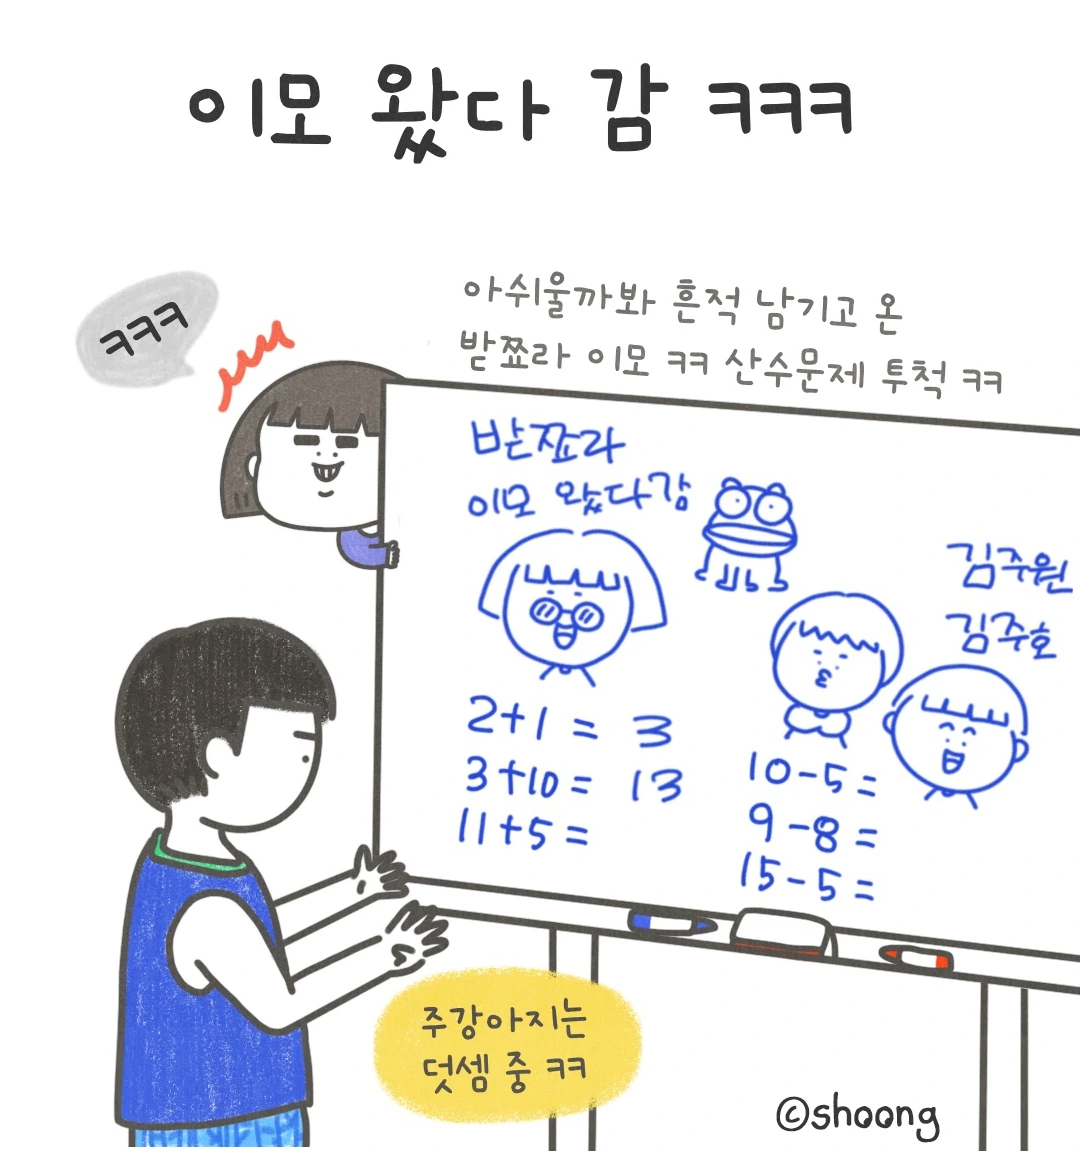 이모 왔다 감 ㅋㅋㅋ
ㅋㅋㅋ
아쉬울까봐 흔적 남기고 온
받쬬라 이모 ㅋㅋ 산수문제 투척 ㅋㅋ
받쬬라
이모 왔다감
김주원
김주호
2+1 = 3
3+10 = 13
11+5 =
10-5 =
9-8 =
15-5 =
주강아지는
덧셈 중 ㅋㅋ
©shoong